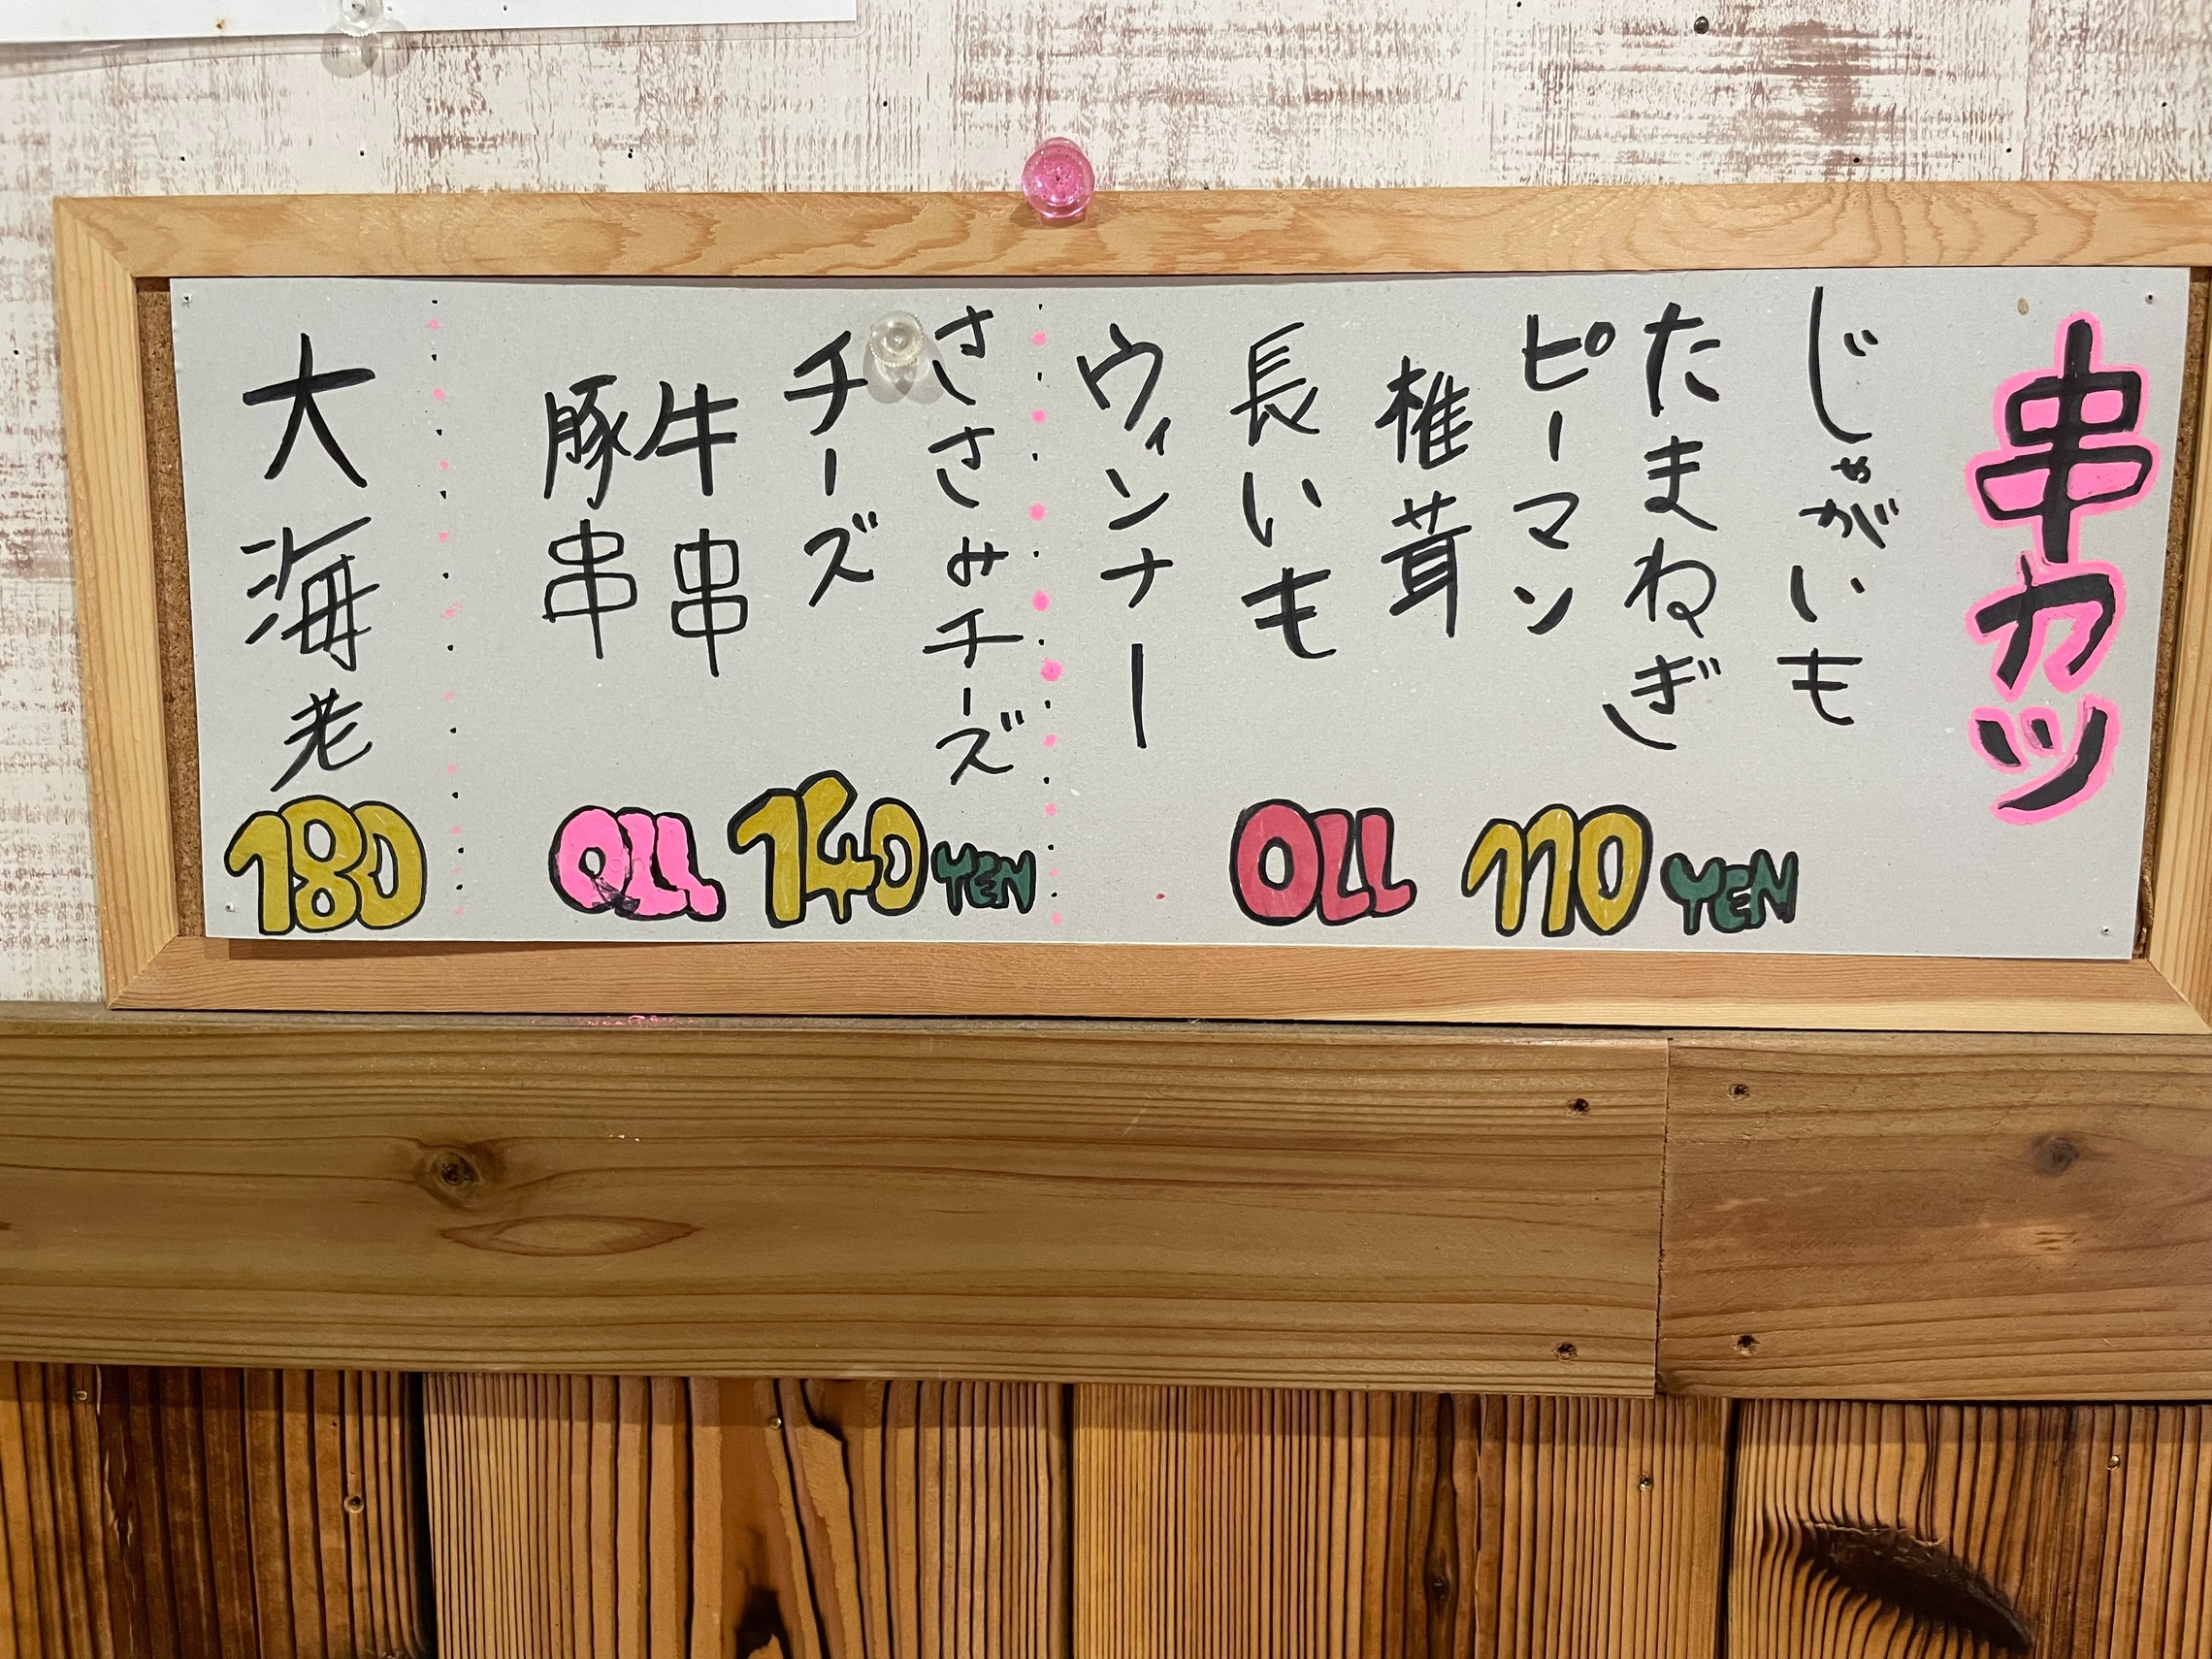 串カツ
じゃがいも
たまねぎ
ピーマン
椎茸
長いも
ウィンナー
OLL 110 YEN
ささみチーズ
チーズ
牛串
豚串
OLL 140 YEN
大海老
180